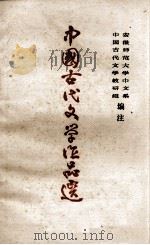 安徽师范大学中文系
中国古代文学教研组
编注
中国古代文学作品选